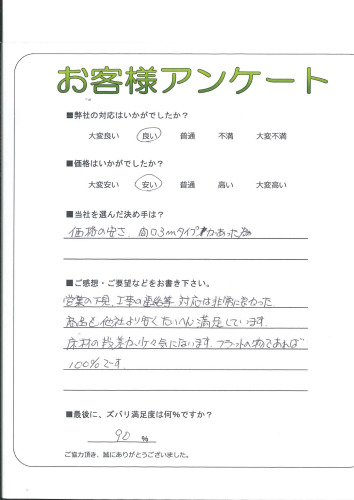 お客様アンケート
■弊社の対応はいかがでしたか？
大変良い 良い 普通 不満 大変不満
■価格はいかがでしたか？
大変安い 安い 普通 高い 大変高い
■当社を選んだ決め手は？
価格の安さ、向03mタイプがあった為
■ご感想・ご要望などをお書き下さい。
営業の下見、工事の連絡等対応は非常に良かった
商品も他社より安くたいへん満足しています。
床材の段差が少々気にないます。フラットの物であれば
100%です
■最後に、ズバリ満足度は何%ですか？
90 %
ご協力頂き、誠にありがとうございました。